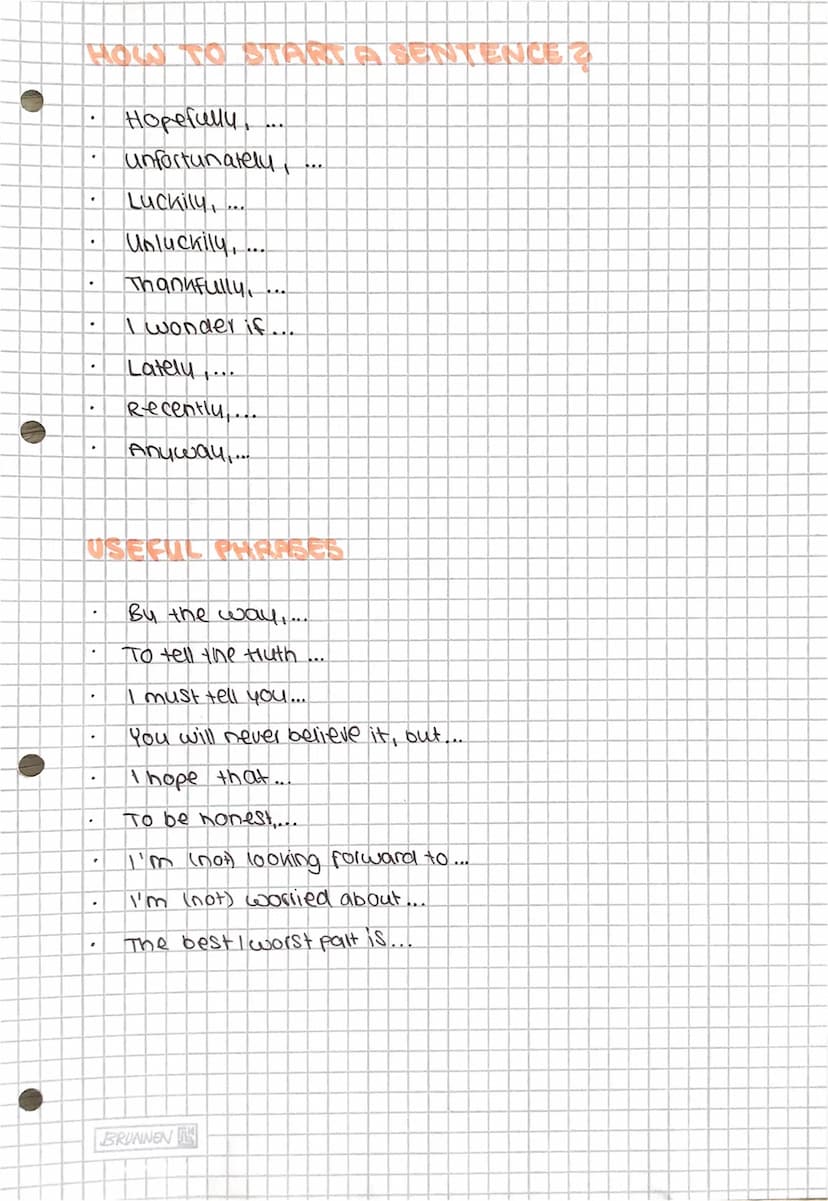 HOW TO START A SENTENCE?
· Hopefully, ...
· Unfortunately, ...
· Luckily, ...
· Unluckily, ...
· Thankfully, ...
· I wonder if...
· Lately,...
· Recently,...
· Anyway,...
USEFUL PHRASES
· By the way,...
· To tell the truth ...
· I must tell you...
· You will never believe it, but...
· I hope that...
· To be honest,...
· I'm (not) looking forward to...
· I'm (not) worried about...
· The best/worst part is...
BRUNNEN